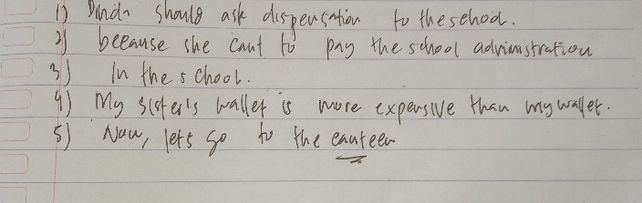 1) Dinda should ask dispensation to the school.
2) because she cant to pay the school administration
3) In the school.
4) My sister's wallet is more expensive than my wallet.
5) Now, lets go to the canteen